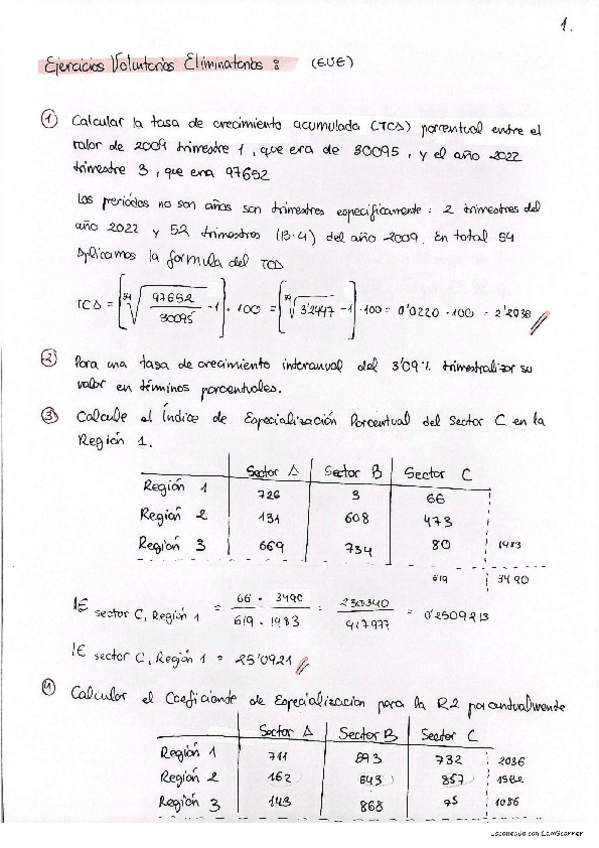 1.
Ejercicios Voluntarios Eliminatorios : (EVE)
① Calcular la tasa de crecimiento acumulada (TCA) porcentual entre el
valor de 2009 trimestre 1, que era de 30095, y el año 2022
trimestre 3, que era 97652
Los periodos no son años son trimestres específicamente: 2 trimestres del
año 2022 y 52 trimestres (13·4) del año 2009. En total 54
Aplicamos la fórmula del TCA
TCA = [ 54√ 97652 / 30095 - 1 ] · 100 = [ 54√ 3'2447 - 1 ] · 100 = 0'0220 · 100 = 2'2038
② Para una tasa de crecimiento interanual del 3'09% trimestralizar su
valor en términos porcentuales.
③ Calcule el Índice de Especialización Porcentual del Sector C en la
Región 1.
Sector A Sector B Sector C
Región 1 726 3 66
Región 2 131 608 473
Región 3 669 734 80 1483
619 3490
IE sector C, Región 1 = 66 · 3490 / 619 · 1483 = 230340 / 917977 = 0'2509213
IE sector C, Región 1 = 25'0921
④ Calcular el Coeficiente de Especialización para la R2 porcentualmente
Sector A Sector B Sector C
Región 1 711 593 732 2036
Región 2 162 543 857
Región 3 143 868 75 1086
Escaneado con CamScanner